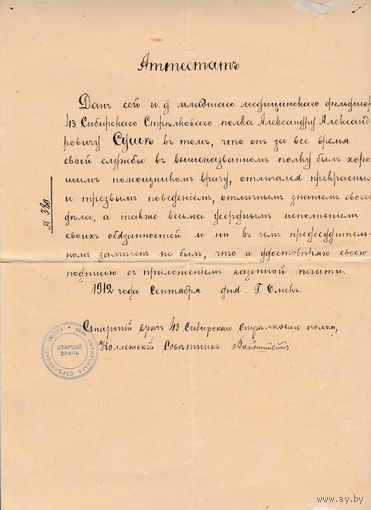 Аттестатъ
Данъ сей и.д. младшаго медицинскаго фельдшера
43 Сибирскаго Стрѣлковаго полка Александру Александ
ровичу Сушко въ томъ, что онъ за все время
своей службы въ вышеназванномъ полку былъ хоро
шимъ помощникомъ врачу, отличался прекраснымъ
и трезвымъ поведеніемъ, отличнымъ знаніемъ своего
дѣла, а также весьма усерднымъ исполненіемъ
своихъ обязанностей и ни въ чемъ предосудитель
номъ замѣченъ не былъ, что и удостовѣряю своею
подписью съ приложеніемъ казенной печати.
1912 года Сентября дня. Г. Омскъ.
№ 380
Старшій врачъ 43 Сибирскаго Стрѣлковаго полка,
Коллежскій Совѣтникъ
СТАРШІЙ
ВРАЧЪ
43го СИБИРСКАГО СТРѢЛКОВАГО ПОЛКА
www.ay.by